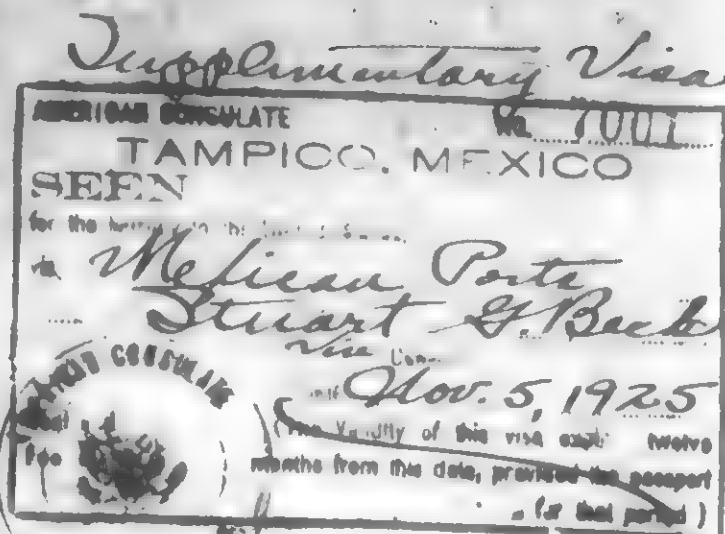 Supplimentary Visa
AMERICAN CONSULATE No. 7001
TAMPICO, MEXICO
SEEN
for the
via Mexican Ports
Stuart G.
Vice
Nov. 5, 1925
CONSULATE
Validity of this visa twelve
Fee months from this date, provided the passport
for that period )